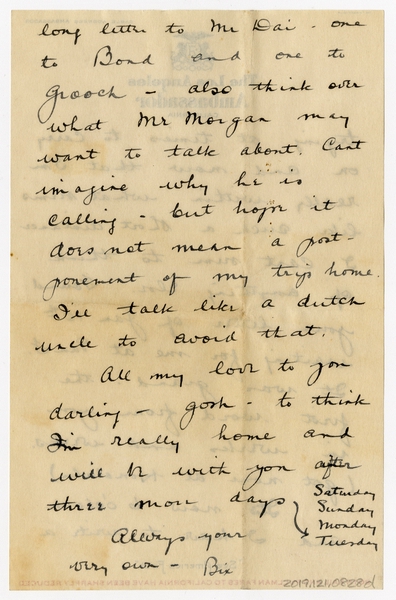 long letter to Mr Dai - one
to Bond and one to
Grooch - also think over
what Mr Morgan may
want to talk about. Cant
imagine why he is
calling - but hope it
does not mean a post-
ponement of my trip home.
I'll talk like a dutch
uncle to avoid that.
All my love to you
darling - gosh - to think
I'm really home and
will be with you after
three more days
Saturday
Sunday
Monday
Tuesday
Always your
very own - Bix
2019.121.0828d